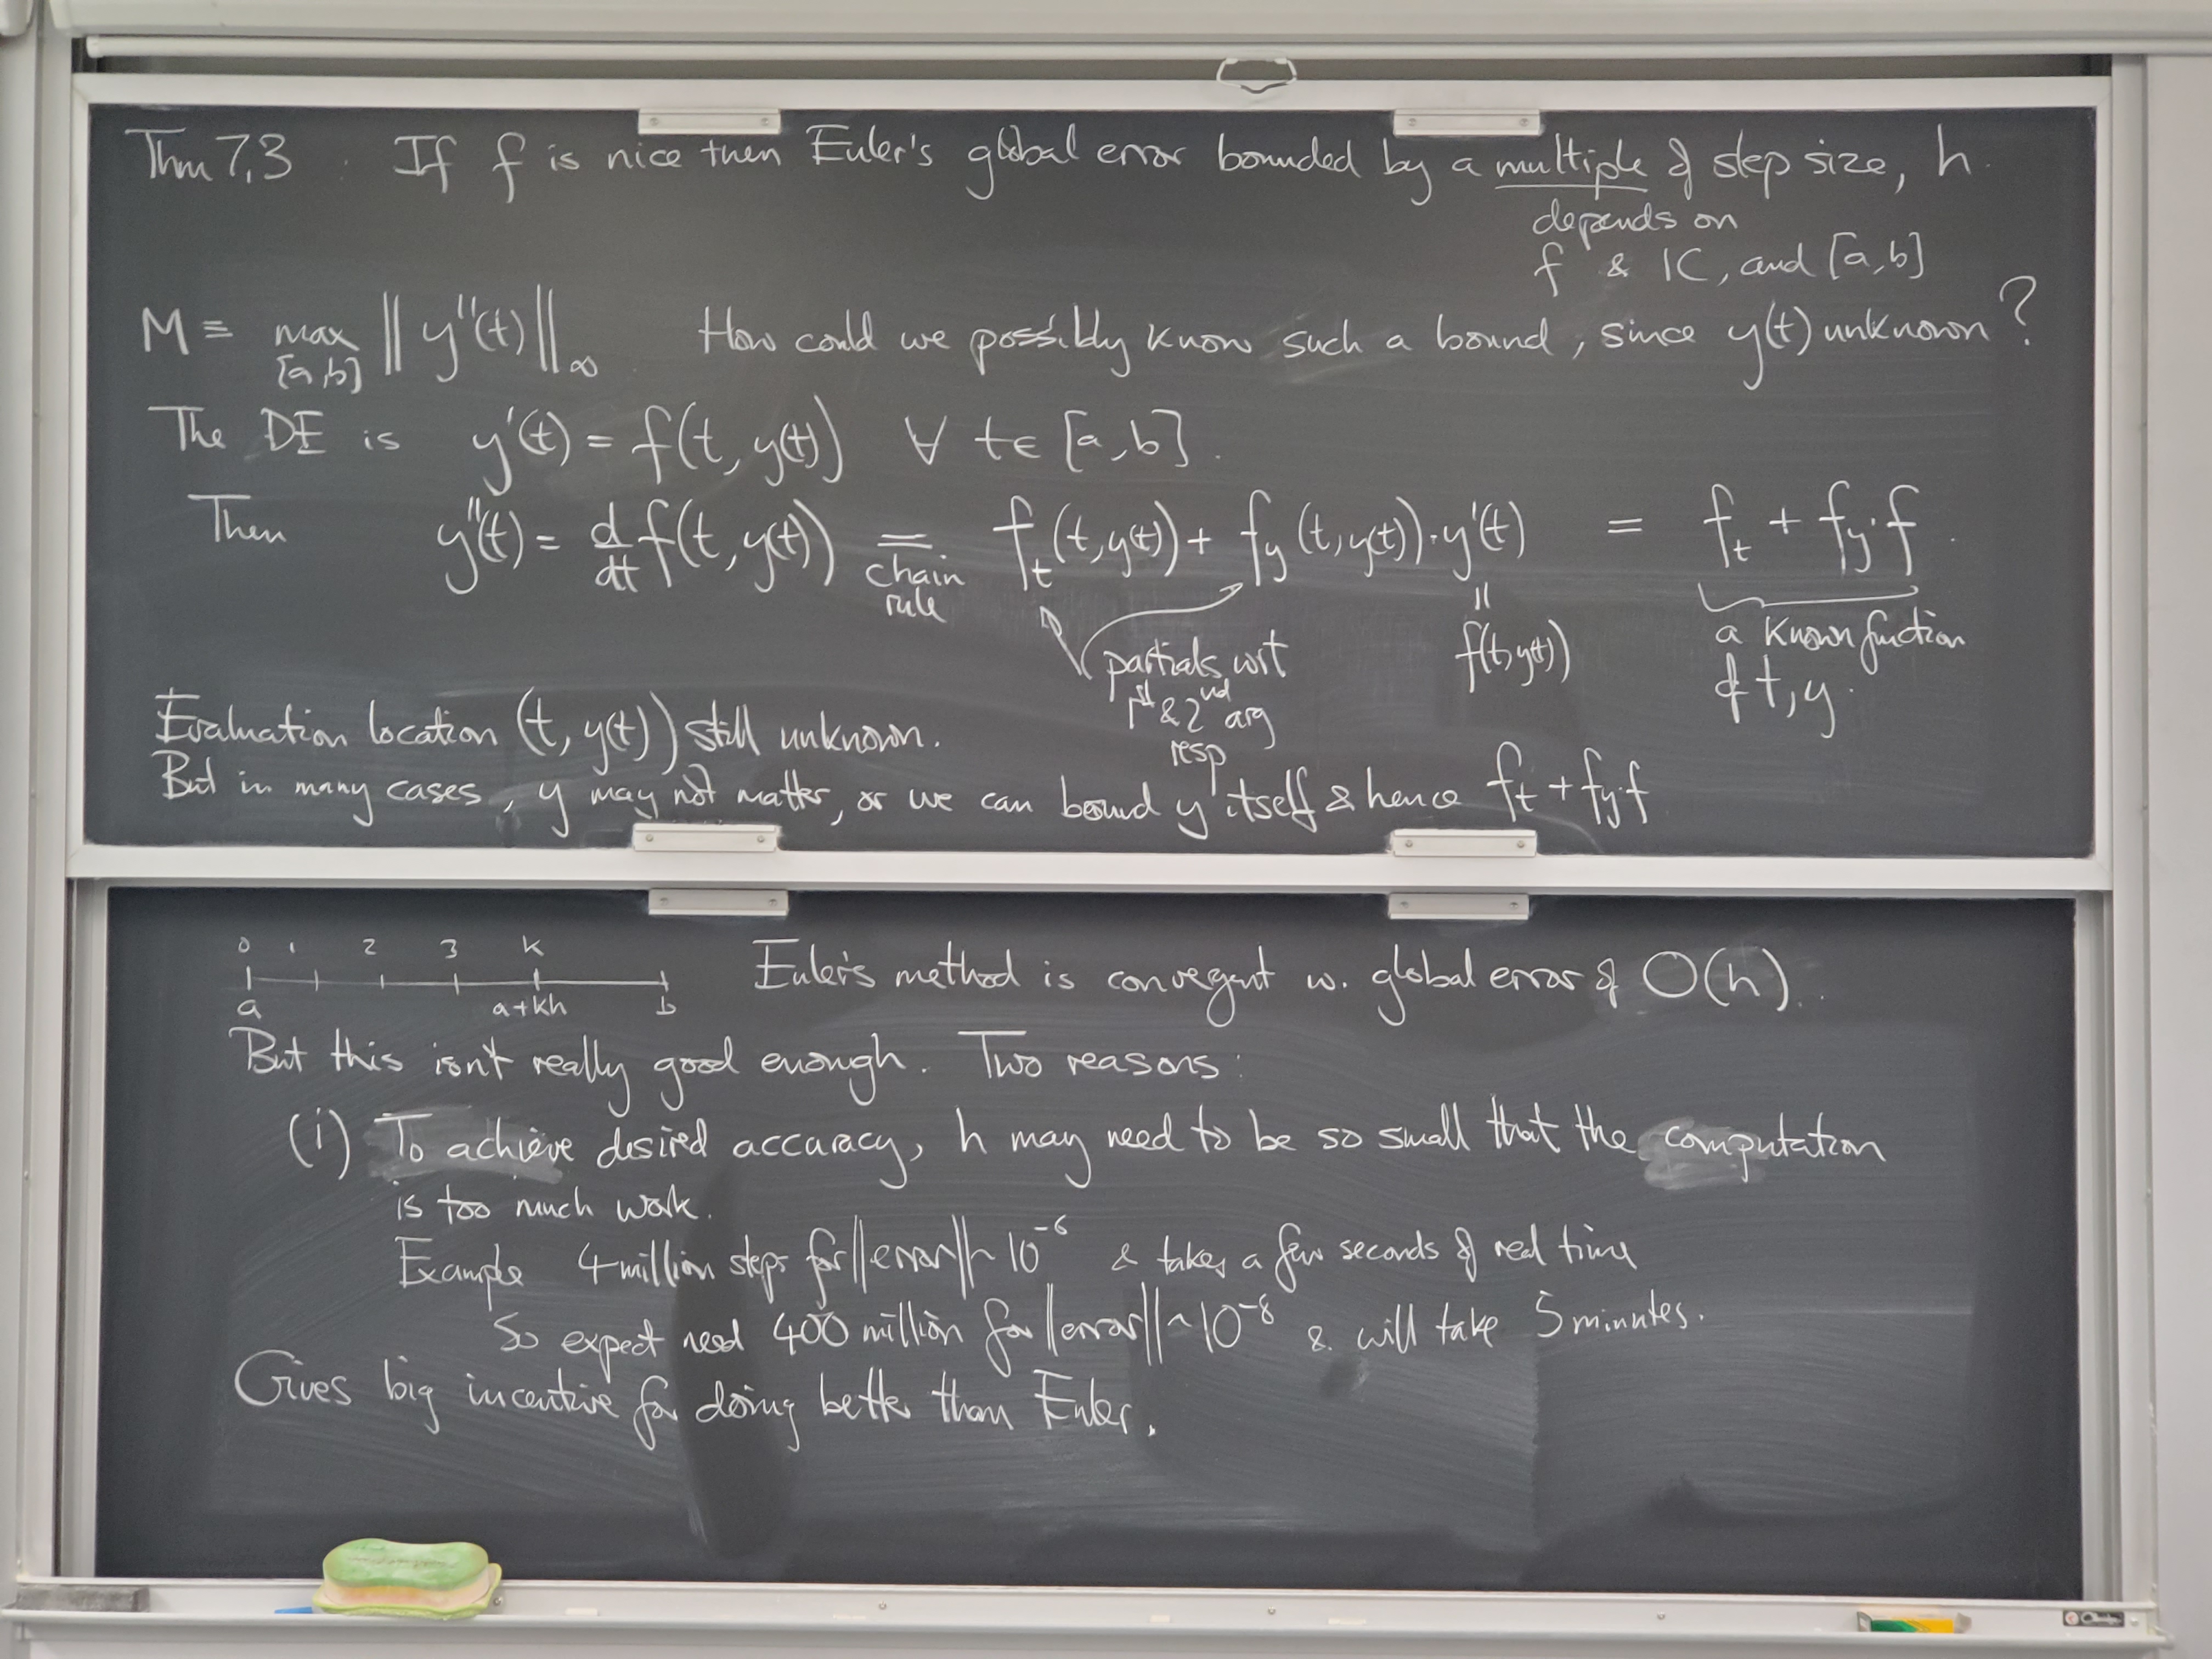 Thm 7.3 If f is nice then Euler's global error bounded by a multiple of step size, h.
depends on
f & IC, and [a,b]
M ≡ max ‖y''(t)‖∞ How could we possibly know such a bound, since y(t) unknown?
[a,b]
The DE is y'(t) = f(t, y(t)) ∀ t ∈ [a,b].
Then y''(t) = d/dt f(t, y(t)) = f_t (t,y(t)) + f_y (t,y(t))·y'(t) = f_t + f_y·f.
chain
rule
=
f(t,y(t))
a known function
of t, y.
partials wrt
1st & 2nd arg
resp
Evaluation location (t, y(t)) still unknown.
But in many cases, y may not matter, or we can bound y itself & hence f_t + f_y·f
0 1 2 3 k
a a+kh b
Euler's method is convergent w. global error of O(h).
But this isn't really good enough. Two reasons:
(i) To achieve desired accuracy, h may need to be so small that the computation
is too much work.
Example 4 million steps for ‖error‖ ~ 10^-6 & takes a few seconds of real time
So expect need 400 million for ‖error‖ ~ 10^-8 & will take 5 minutes.
Gives big incentive for doing better than Euler.